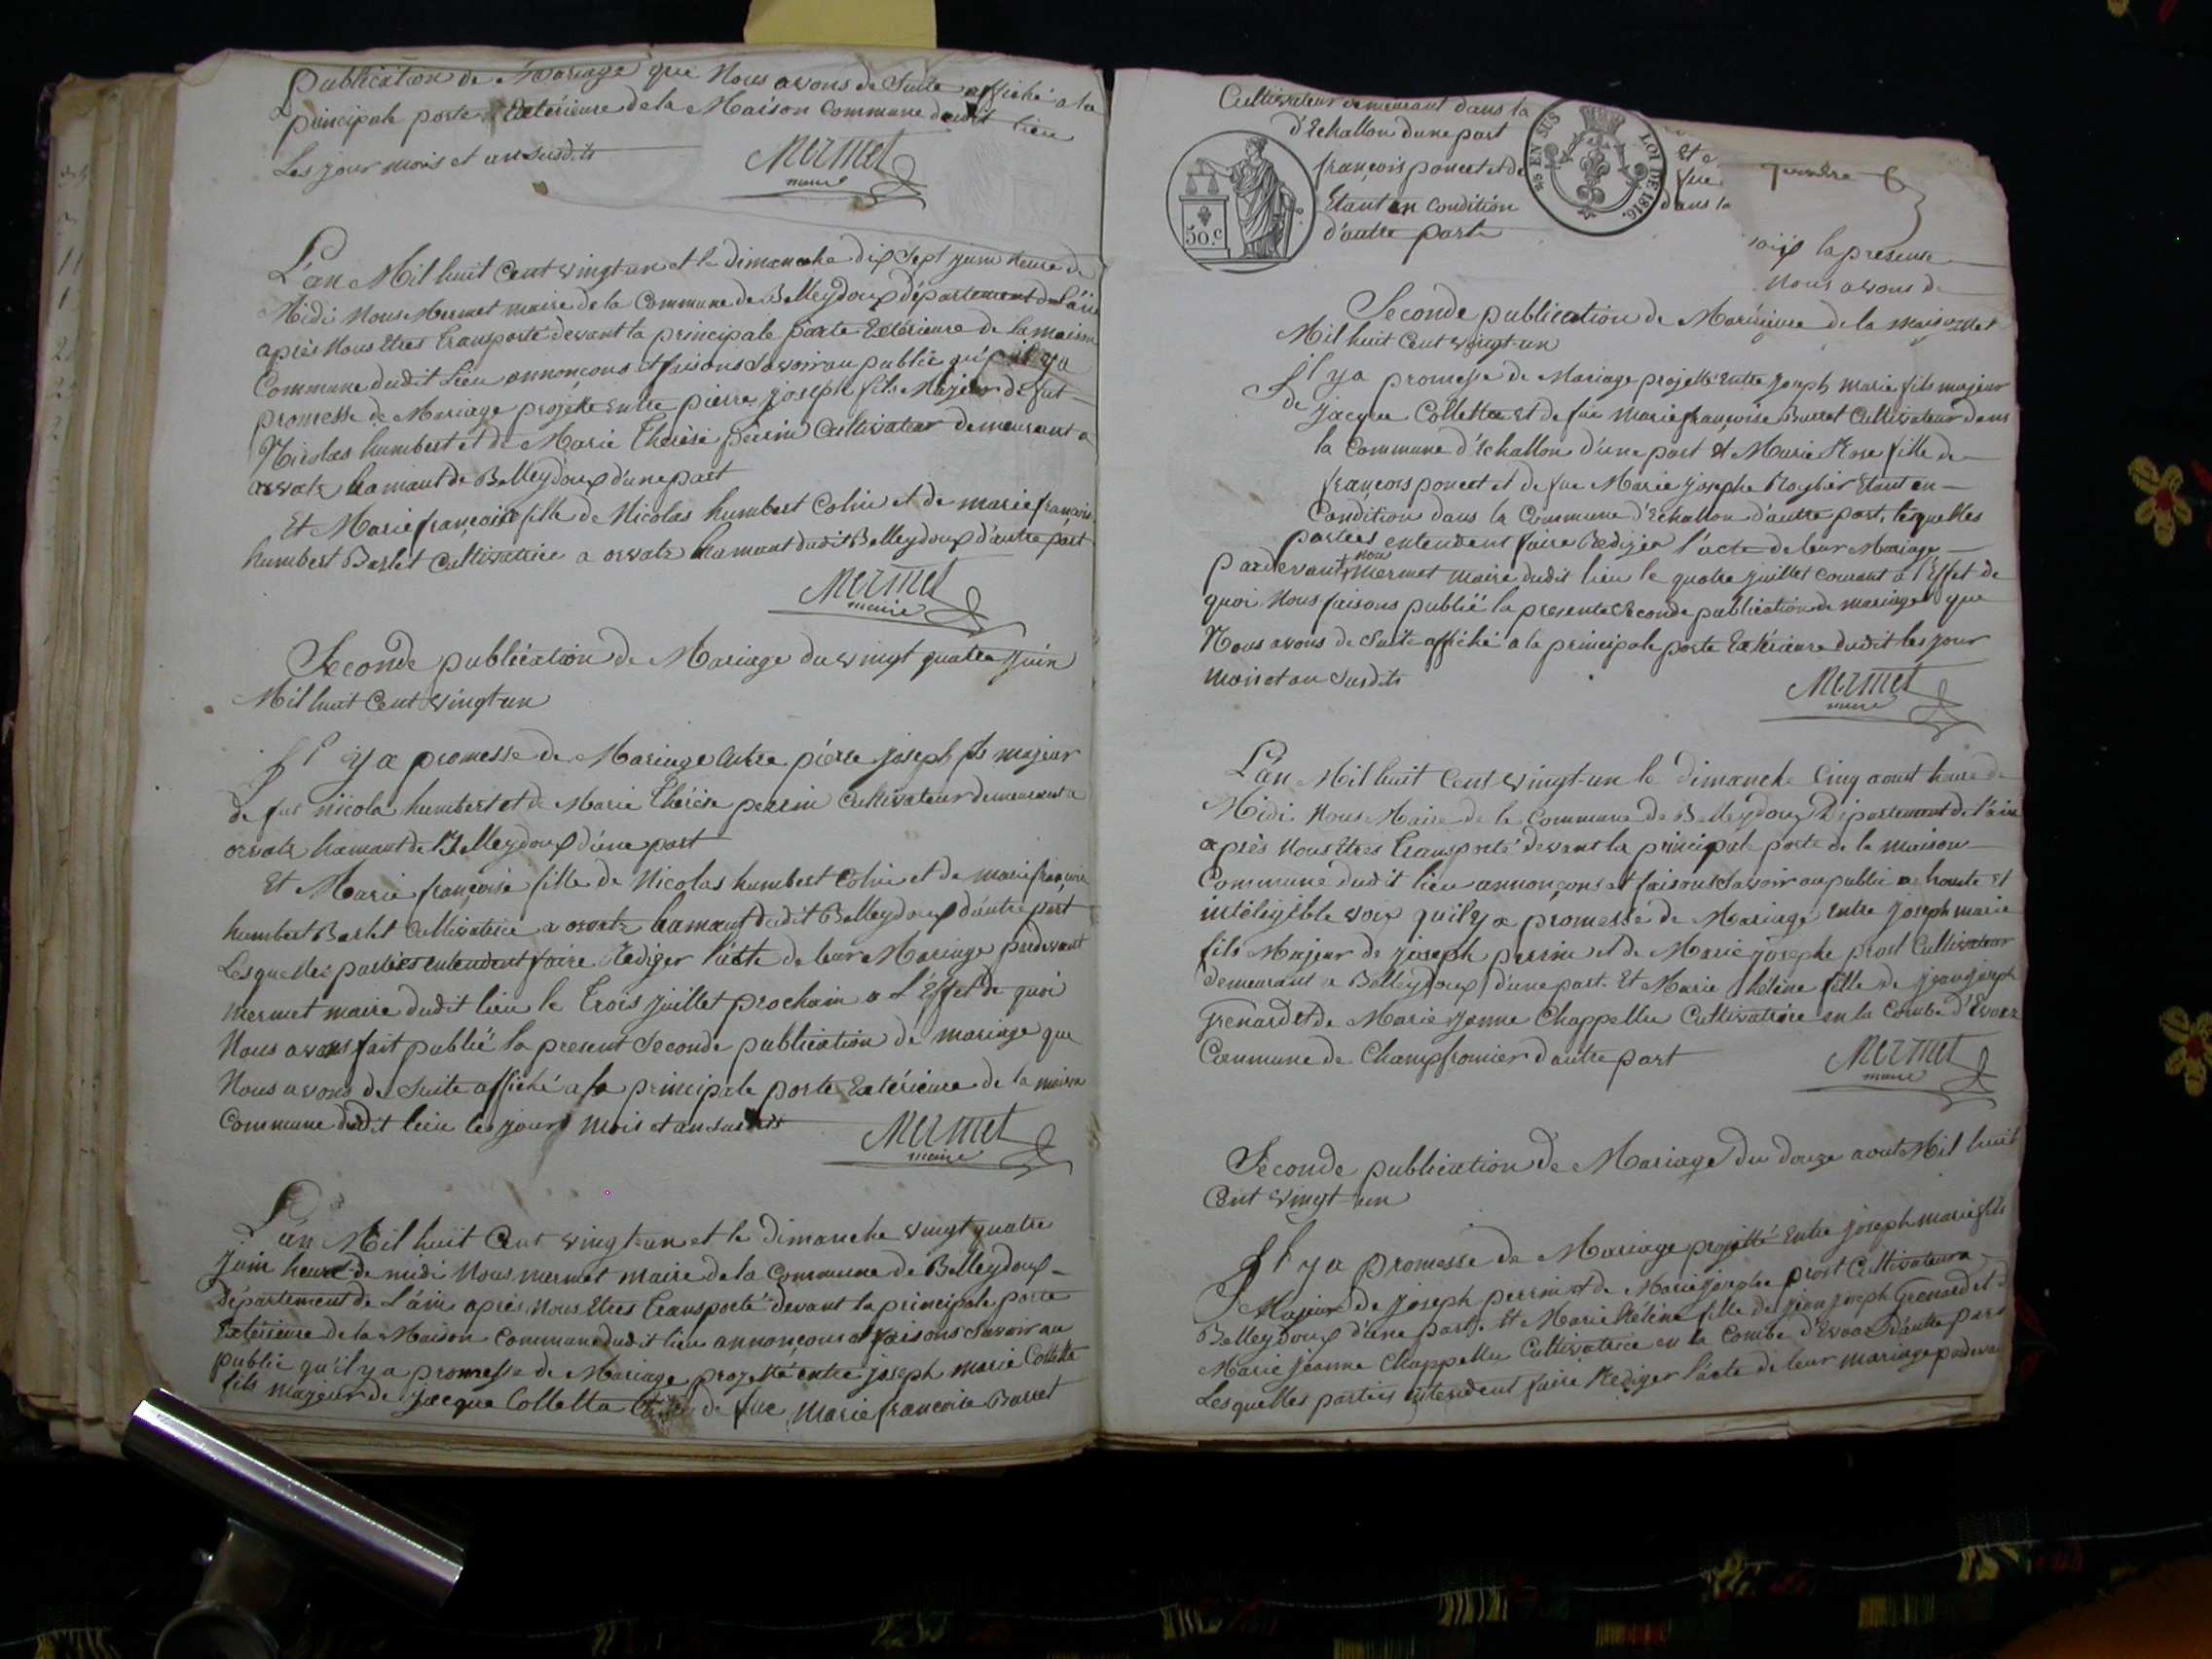 publication de Mariage que Nous avons de Suite affiché a la
principale porte Extérieure de la Maison Commune dudit lieu
Les jour mois et an susdits
Mermet
maire
L'an Mil huit Cent vingt un et le dimanche dix Sept juin heure de
Midi Nous Mermet maire de la Commune de Belleydoux département de l'ain
après Nous Etres transporté devant la principale porte Extérieure de la maison
Commune dudit Lieu annonçons et faisons Savoir au public qu'il y a
promesse de Mariage projetté Entre pierre joseph fils Majeur de fut
Nicolas humbert et de Marie Thérèse perrin Cultivateur demeurant a
orvatz hamaut de Belleydoux d'une part
Et Marie françoise fille de Nicolas humbert Colin et de marie françoise
humbert Barlet Cultivatrice a orvatz hamaut dudit Belleydoux d'autre part
Mermet
maire
Seconde publication de Mariage du vingt quatre Juin
Mil huit Cent vingt un
Il y a promesse de Mariage Entre pierre joseph fs majeur
de fut nicola humbert et de Marie Thérèse perrin Cultivateur demeurant a
orvatz hamaut de Belleydoux d'une part
Et Marie françoise fille de Nicolas humbert Colin et de marie françoise
humbert Barlet Cultivatrice a orvatz hamaut dudit Belleydoux d'autre part
Lesquelles parties entendent faire Rediger l'acte de leur Mariage pardevant
mermet maire dudit lieu le Trois juillet prochain a L'Effet de quoi
Nous avons fait publié la present Seconde publication de mariage que
Nous avons de Suite affiché a la principale porte Extérieure de la maison
Commune dudit lieu les jour mois et an susdits
Mermet
maire
L'an Mil huit Cent vingt un et le dimanche vingt quatre
Juin heure de midi Nous mermet maire de la Commune de Belleydoux
département de L'ain après Nous Etres transporté devant la principale porte
Extérieure de la Maison Commune dudit lieu annonçons et faisons Savoir au
public qu'il y a promesse de Mariage projetté entre joseph marie Colletta
fils majeur de jacque Colletta de fue Marie françoise Barret
Cultivateur demeurant dans la
d'Echallon d'une part
françois poncet et de
Etant en Condition
d'autre parte
50.c
EN SUS
LOI DE 1816.
Et
fue
dans la
la presente
Nous avons de
Seconde publication de Mar ieure de la maison
Mil huit Cent vingt un
Il y a promesse de Mariage projetté Entre joseph marie fils majeur
de jacque Colletta Et de fue marie françoise Burret Cultivateur dans
la Commune d'Echallon d'une part Et Marie Rose fille de
françois poncet et de fue Marie josephe Roybier Etant en
Condition dans la Commune d'Echallon d'autre part, lesquelles
parties entendent faire Rediger l'acte de leur Mariage
pardevant nous mermet maire dudit lieu le quatre juillet courant a l'Effet de
quoi Nous faisons publié la presente Seconde publication de mariage que
Nous avons de Suite affiché a la principale porte Extérieure dudit les jour
mois et an susdits
Mermet
maire
L'an Mil huit Cent vingt un le dimanche Cinq aoust heure de
Midi Nous Maire de la Commune de Belleydoux Département de l'ain
après Nous Etres transporté devant la principale porte de la maison
Commune dudit lieu annonçons et faisons Savoir au public a haute Et
inteligible voix qu'il y a promesse de Mariage Entre joseph marie
fils Majeur de joseph perrin et de Marie josephe prost Cultivateur
demeurant a Belleydoux d'une part. Et Marie hélène fille de jean joseph
Grenard et de Marie Jeanne Chappellu Cultivatrice en la Combe d'Evoaz
Commune de Champfromier d'autre part
Mermet
maire
Seconde publication de Mariage du douze aout Mil huit
Cent vingt un
Il y a promesse de Mariage projetté Entre joseph marie fils
Majeur de joseph perrin et de Marie josephe prost Cultivateur a
Belleydoux d'une part. Et Marie hélène fille de jean joseph Grenard et d
Marie jeanne Chappellu Cultivatrice en la Combe d'Evoaz d'autre part
Lesquelles parties entendent faire Rediger l'acte de leur mariage pardevan